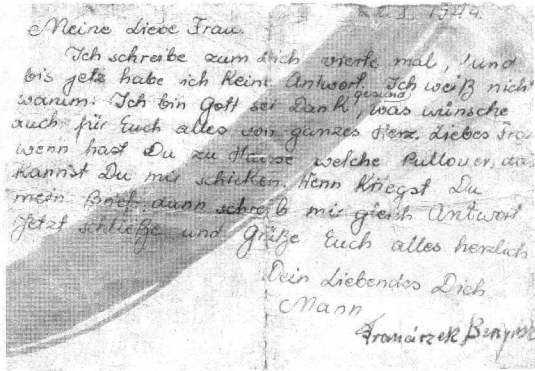 1944.
Meine Liebe Frau.
Ich schreibe zum Dich vierte mal, und
bis jetz habe ich keine Antwort. Ich weiß nich
warum. Ich bin Gott sei Dank gesund, was wünsche
auch für Euch alles von ganzes Herz. Liebes Frau
wenn hast Du zu Hause welche Pullover, das
kannst Du mir schicken. Wenn Kriegst Du
mein Brief dann schreib mir gleich Antwort
Jetzt schließe und Grüße Euch alles herzlich
Dein Liebendes Dich
Mann
Franciszek